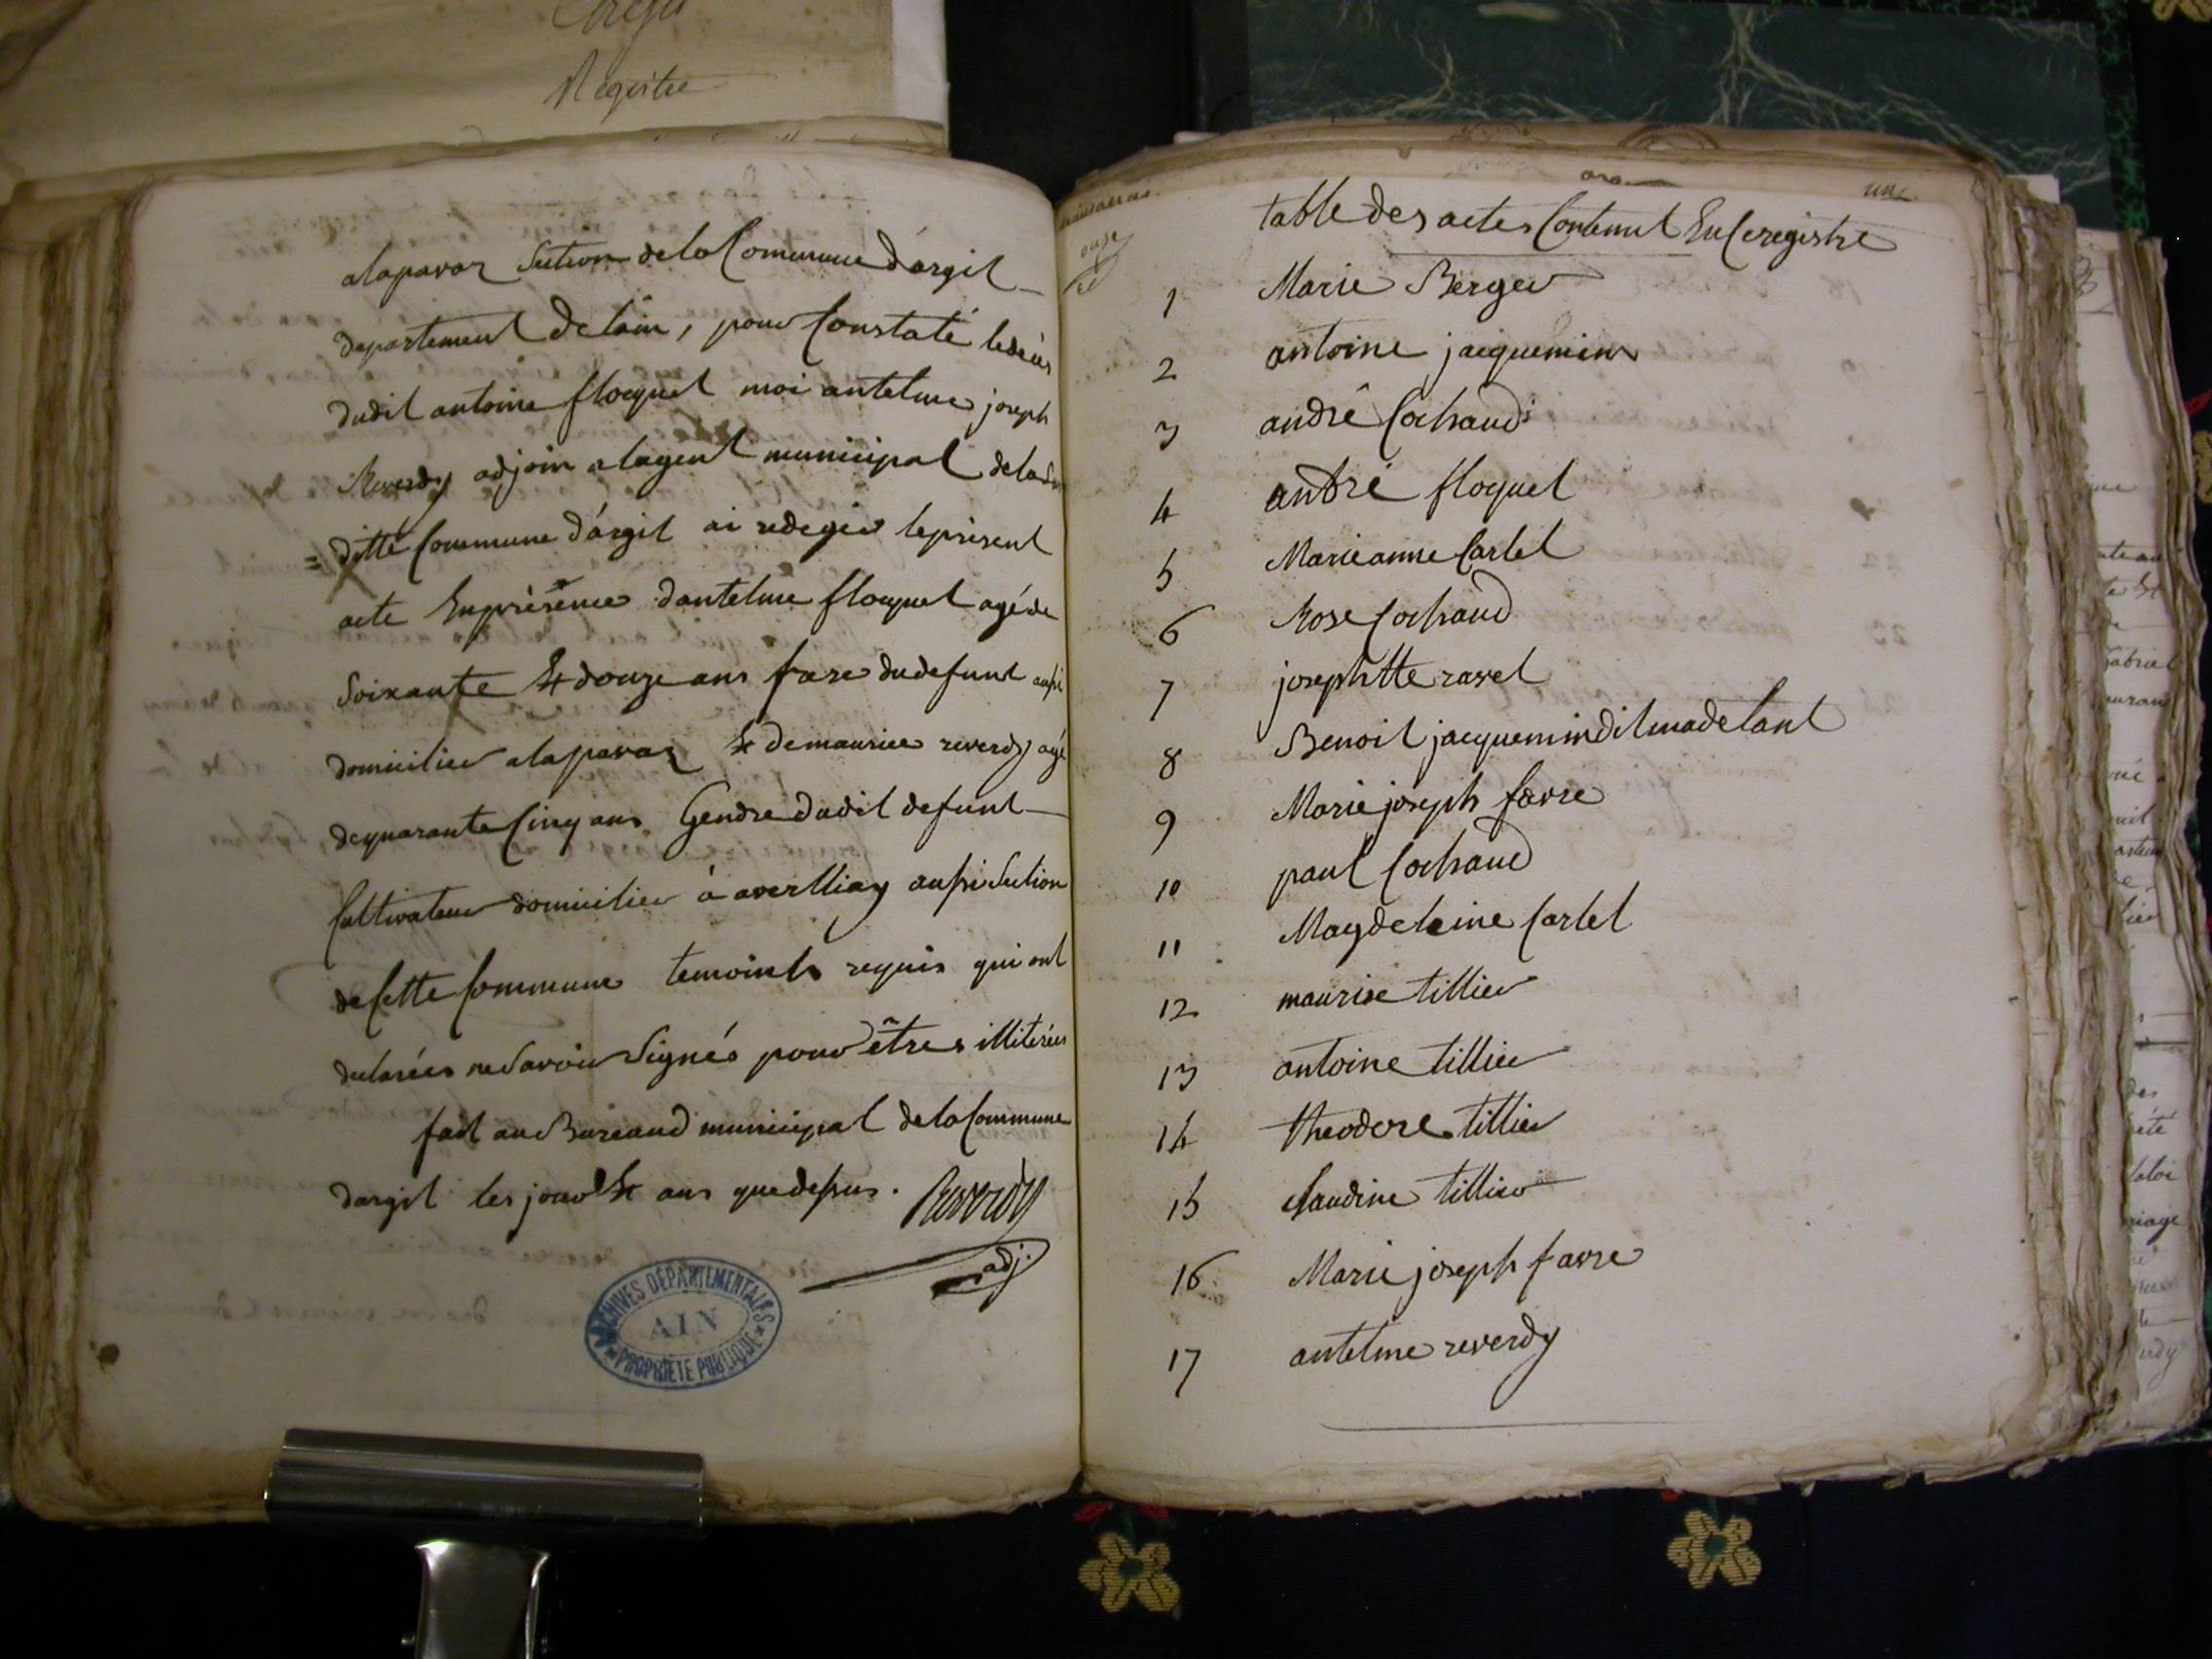 Registre
alaparaz Section de la Commune d'argil
departement de lain, pour Constaté ledécès
dudit antoine floquet moi antelme joseph
Reverdy adjoin alagent municipal delasus
= ditte Commune d'argil ai redigér leprésent
acte Enprésence dantelme floquet agé de
Soixante Et douze ans frere dudefunt aussi
domicilier alaparaz Et demaurice reverdy agé
dequarante Cinq ans Gendre dudit defunt
Cultivateur domicilier à averlliay aussi Section
de Cette Commune temoints requis qui ont
declarées ne Savoir Signés pour êtres illiterées
fait au Bureaud municipal de la Commune
dargil les jour Et ans que dessus. Reverdy
adj.
ARCHIVES DÉPARTEMENTALES
AIN
PROPRIÉTÉ PUBLIQUE
onze
une
table des actes Contenut En Ceregistre
1 Marie Berger
2 antoine jacquemin
3 andré Cochaud
4 andré floquet
5 Marie anne Carlet
6 Rose Cochaud
7 josephtte ravet
8 Benoit jacquemin dit madelant
9 Marie joseph favre
10 paul Cochaud
11 Magdeleine Carlet
12 maurise tillier
13 antoine tillier
14 theodore tillier
15 Claudine tillier
16 Marie joseph favre
17 antelme reverdy